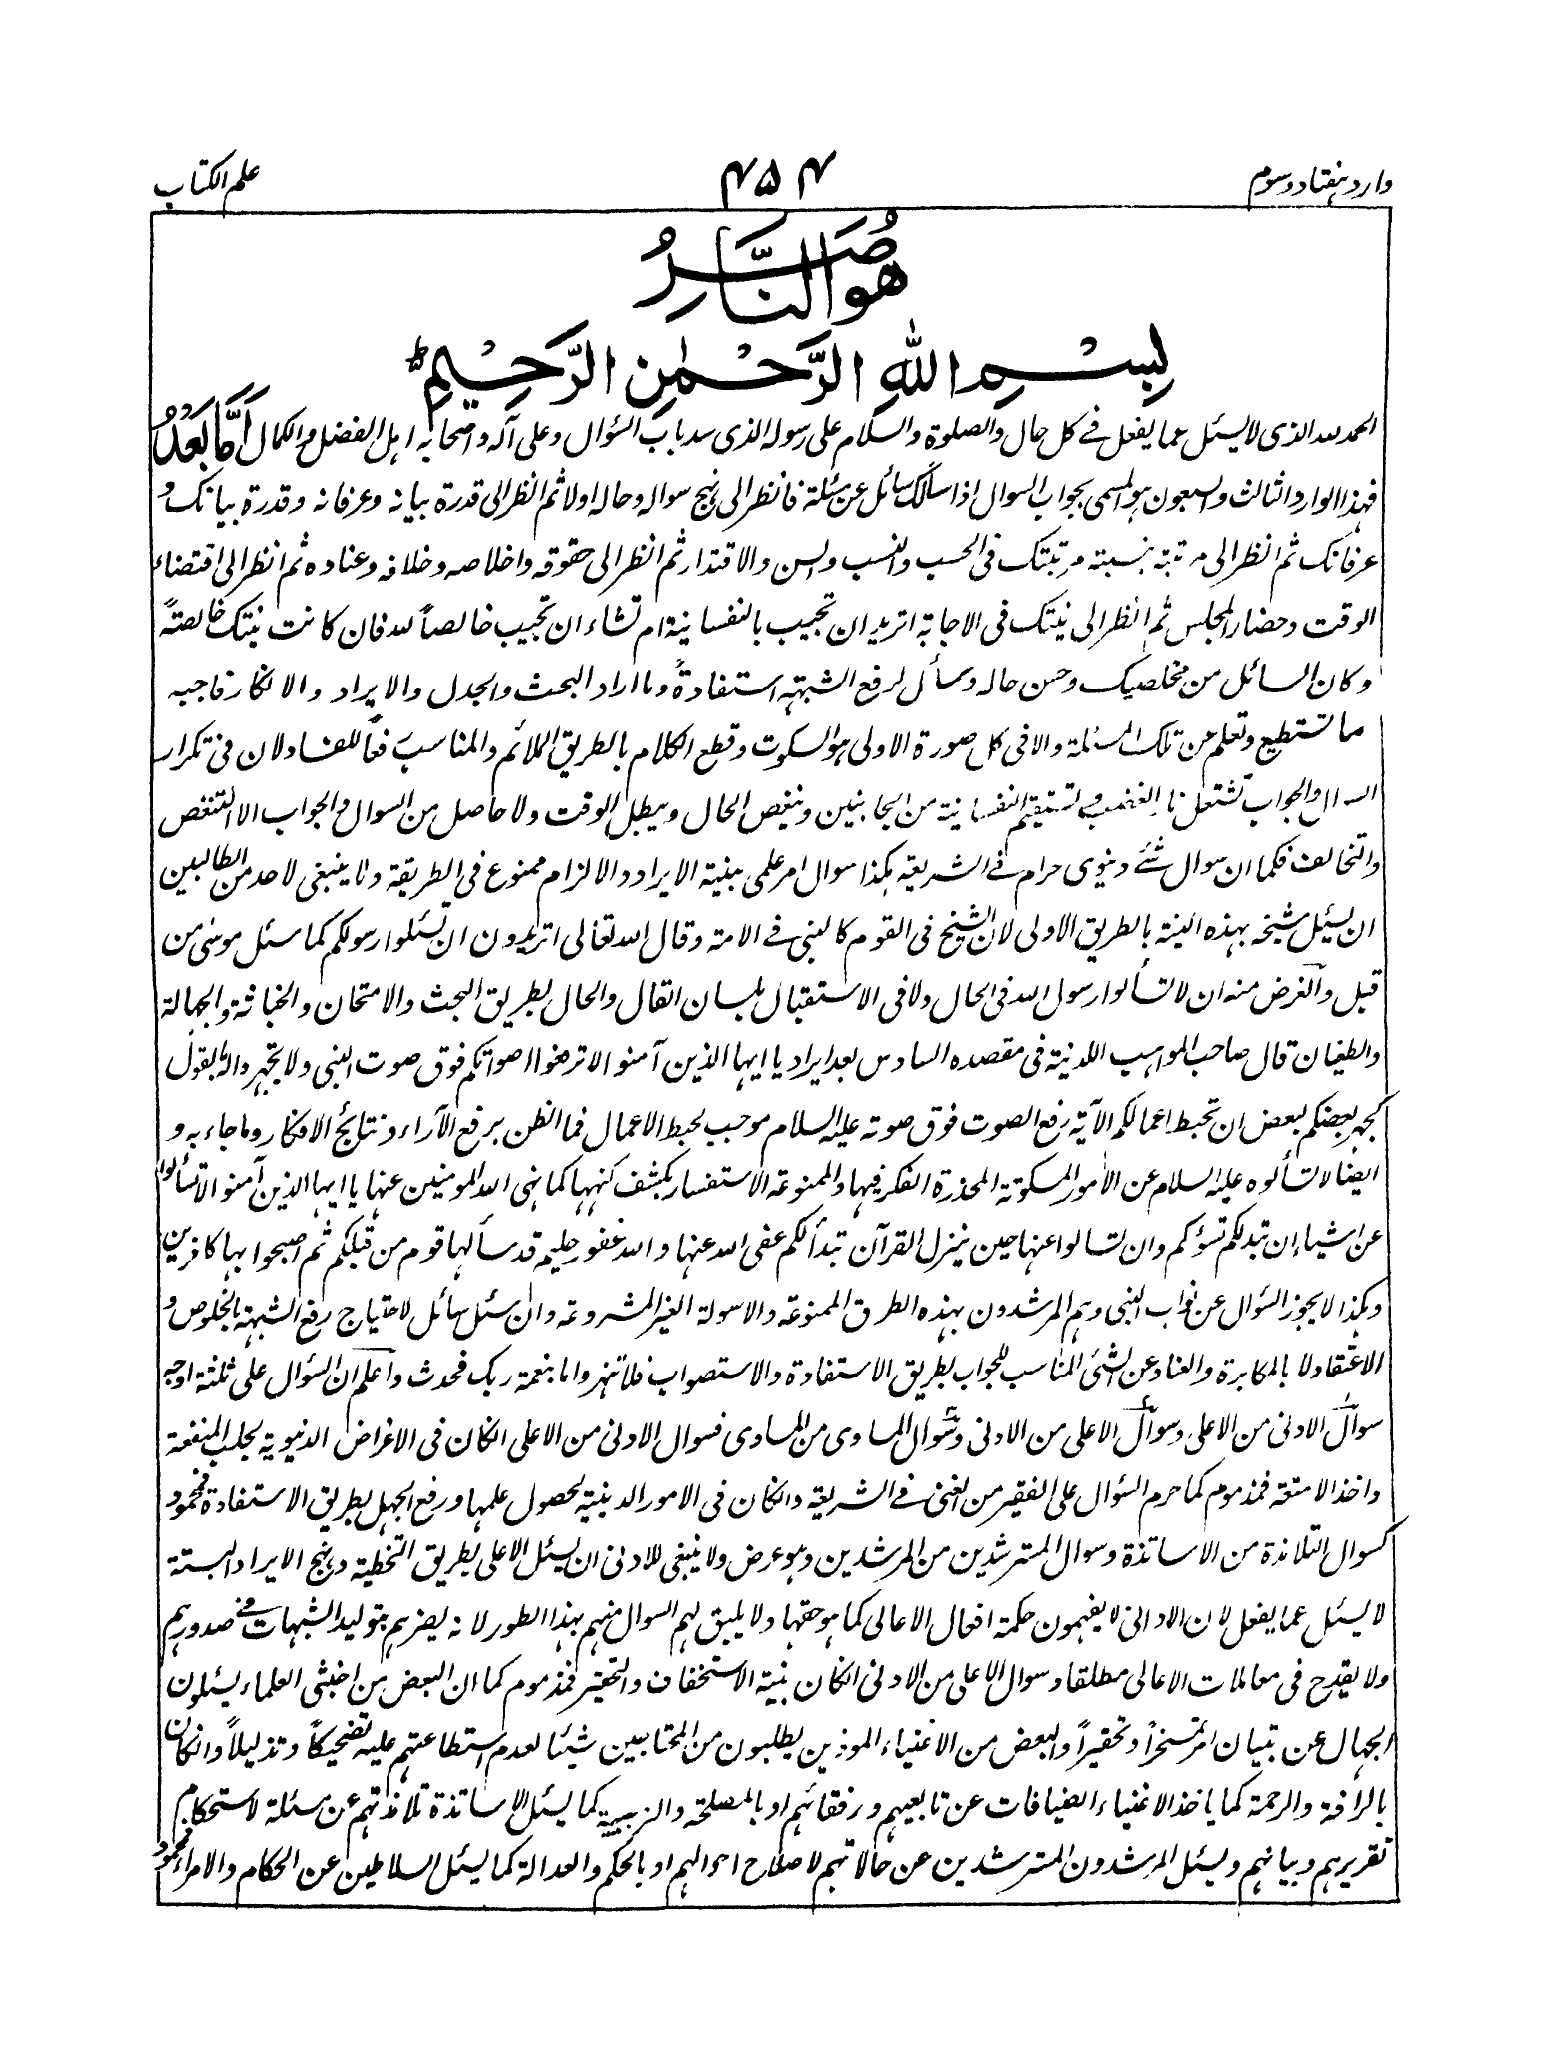 وارد ہفتاد و سوم
۴۵۴
علم الکتاب
هو الناصر
بسم الله الرحمن الرحيم ط
الحمد لله الذی لا یسئل عما یفعل فے کل حال والصلوة والسلام علی رسوله الذی سد باب السؤال وعلی آله واصحابه اہل الفضل والکمال اما بعد
فہذا الوارد الثالث والسبعون ہو المسمی بجواب السوال اذا سألک سائل عن مسئلة فانظر الی نہج سواله وحاله اولا ثم انظر الی قدرة بیانه وعرفانه وقدرة بیانک و
عرفانک ثم انظر الی مرتبته بنسبته مرتبتک فی الحسب والنسب والسن والاقتدار ثم انظر الی حقوقه واخلاصه وخلافه وعناده ثم انظر الی اقتضاء
الوقت وحضار المجلس ثم انظر الی نیتک فی الاجابة اترید ان تجیب بالنفسانیة ام تشاء ان تجیب خالصاً لله فان کانت نیتک خالصتہً
وکان السائل من مخلصیک وحسن حاله وسأل لرفع الشبہتہ استفادةً وما اراد البحث والجدل والایراد والانکار فاجبه
ما تستطیع وتعلم من تلک المسئلة والا فی کل صورة الاولی ہو السکوت وقطع الکلام بالطریق الملائم والمناسب دفعاً للفساد لان فی تکرار
السوال والجواب تشتعل نار الغضب وتستقیم النفسانیة من الجانبین وینغص الحال ویبطل الوقت ولا حاصل من السوال والجواب الا التنغص
والتخالف فکما ان سوال شئے دنیوی حرام فے الشریعة ہکذا سوال امر علمی بنیة الایراد والالزام ممنوع فی الطریقة ولا ینبغی لاحد من الطالبین
ان یسئل شیخه بہذه النیة بالطریق الاولی لان الشیخ فی القوم کالنبی فے الامة وقال الله تعالی اتریدون ان تسئلوا رسولکم کما سئل موسی من
قبل والغرض منه ان لا تسألوا رسول الله فی الحال ولا فی الاستقبال بلسان القال والحال بطریق البحث والامتحان والخباثة والجہالة
والطغیان قال صاحب المواہب اللدنیة فی مقصده السادس بعد ایراد یا ایہا الذین آمنوا لا ترفعوا اصواتکم فوق صوت النبی ولا تجہروا له بالقول
کجہر بعضکم لبعض ان تحبط اعمالکم الآیة رفع الصوت فوق صوته علیه السلام موجب لحبط الاعمال فما الظن برفع الآراء ونتائج الافکار وما جاء به و
ایضا لا تسألوه علیه السلام عن الامور المسکوتة المحذرة الفکر فیہا والممنوعة الاستفسار بکشف کنہہا کما نہی الله المومنین عنہا یا ایہا الذین آمنوا لا تسألوا
عن اشیاء ان تبد لکم تسؤکم وان تسالوا عنہا حین ینزل القرآن تبدأ لکم عفی الله عنہا والله غفور حلیم قد سألہا قوم من قبلکم ثم اصبحوا بہا کافرین
وہکذا لا یجوز السؤال عن نواب النبی وہم المرشدون بہذه الطرق الممنوعة والاسولة الغیر المشروعة وان سئل سائل لاحتیاج رفع الشبہة بالخلوص و
الاعتقاد لا بالمکابرة والعناد عن الشئ المناسب للجواب بطریق الاستفادة والاستصواب فلا تنہر واما بنعمة ربک فحدث واعلم ان السؤال علی ثلثة اوجه
سوال الادنی من الاعلی وسوال الاعلی من الادنی وسوال المساوی من المساوی فسوال الادنی من الاعلی انکان فی الاغراض الدنیویة بجلب المنفعة
واخذ الامتعة فمذموم کما حرم السؤال علی الفقیر من الغنی فے الشریعة وانکان فی الامور الدینیة لحصول علمہا ورفع الجہل بطریق الاستفادة فمحمود
کسوال التلامذة من الاساتذة وسوال المسترشدین من المرشدین وہو عرض ولا ینبغی للادنی ان یسئل الاعلی بطریق التخطیة ونہج الایراد البتة
لا یسئل عما یفعل لان الادانی لا یفہمون حکمة افعال الاعالی کما ہو حقہا ولا یلیق لہم السوال منہم بہذا الطور لانه یضرہم بتولید الشبہات فے صدورہم
ولا یقدح فی معاملات الاعالی مطلقا وسوال الاعلی من الادنی انکان بنیة الاستخفاف والتحقیر فمذموم کما ان البعض من اخبثی العلماء یسئلون
الجہال عن تبیان امر تمسخراً وتحقیراً والبعض من الاغنیاء الموذین یطلبون من المحتاجین شیئا لعدم استطاعتہم علیه تضحیکاً وتذلیلاً وانکان
بالرأفة والرحمة کما یاخذ الاغنیاء الضیافات عن تابعیہم ورفقائہم او بالمصلحة والتربیة کما یسئل الاساتذة تلامذتہم عن مسئلة لاستحکام
تقریرہم وبیانہم ویسئل المرشدون المسترشدین عن حالاتہم لاصلاح احوالہم او بالحکم والعدالة کما یسئل السلاطین عن الحکام والامراء فمحمود